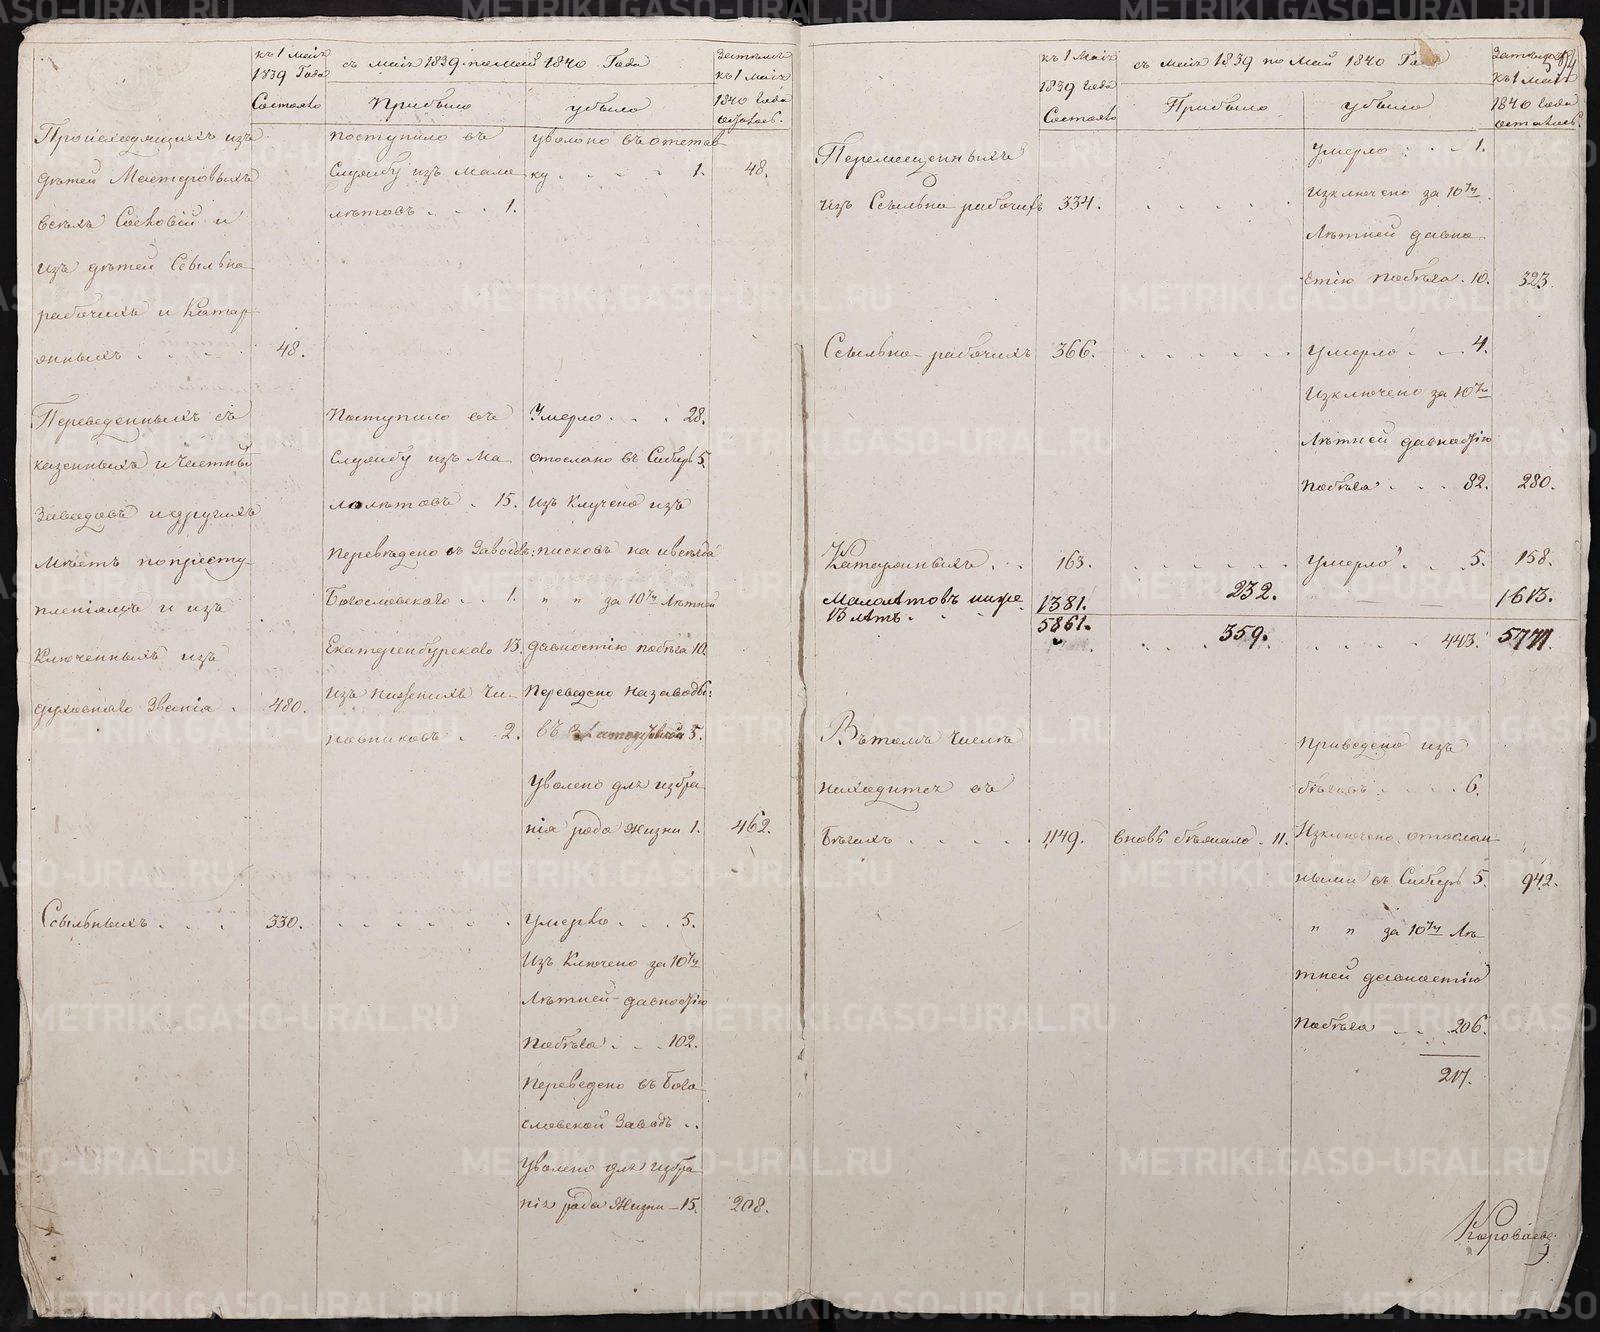 къ 1 Маія
1839 Года
Состояло
съ Маія 1839 по Маій 1840 Года
Прибыло
убыло
Затѣмъ
къ 1 Маія
1840 Года
осталось.
Происходящихъ изъ
дѣтей Мастеровыхъ
всѣхъ Сословій и
изъ дѣтей Ссыльно
рабочихъ и Катор
жныхъ . . . 48.
поступило въ
Службу изъ Мало
лѣтовъ . . . 1.
уволено въ отстав
ку . . . . 1.
48.
Переведенныхъ съ
казенныхъ и частныхъ
Заводовъ и другихъ
Мѣстъ по престу-
пленіямъ и изъ
ключенныхъ изъ
духовнаго Званія . 480.
Поступило въ
Службу изъ Ма
лолѣтовъ . 15.
переведено съ Заводовъ:
Богословскаго . . 1.
Екатеринбургскаго 13.
изъ нижнихъ чи-
новниковъ . 2.
Умерло . . . 28.
отослано въ Сибирь 5.
Изъ Ключено изъ
списковъ на
" " за 10ти Лѣтней
давностію побѣга 10.
Переведено на заводы:
въ 5.
Уволено для избра
нія рода Жизни 1.
462.
Ссыльныхъ . . . 330.
. . . . . .
Умерло . . . 5.
Изъ Ключено за 10ти
Лѣтней давностію
Побѣга . . . 102.
Переведено въ Бого
словской Заводъ . .
Уволено для избра
нія рода Жизни — 15.
208.
къ 1 Маія
1839 года
Состояло
съ Маія 1839 по Маій 1840 Года
Прибыло
убыло
Затѣмъ
къ 1 Маія
1840 Года
осталось.
Перемещенныхъ
изъ Ссыльно рабочихъ 334.
. . . . .
Умерло . . . 1.
Изключено за 10ти
Лѣтней давно
стію Побѣга . 10.
323.
Ссыльно-рабочихъ 366.
. . . . . .
Умерло . . . 4.
Изключено за 10ти
Лѣтней давностію
Побѣга . . . 82.
280.
Каторжныхъ . . 163.
. . . . . .
Умерло . . . 5.
158.
Малолѣтовъ ниже
13 лѣтъ . . 1381.
232.
1613.
5861.
359.
443.
5777.
Въ томъ Числѣ
находится въ
Бѣгахъ . . . . 1,149.
вновь бѣжало . 11.
Приведено изъ
бѣговъ . . . . 6.
Изключено, отослан-
ными въ Сибирь 5.
942.
" " за 10ти Лѣ
тней давностію
Побѣга . . . 206.
217.
Короваевъ
METRIKI.GASO-URAL.RU